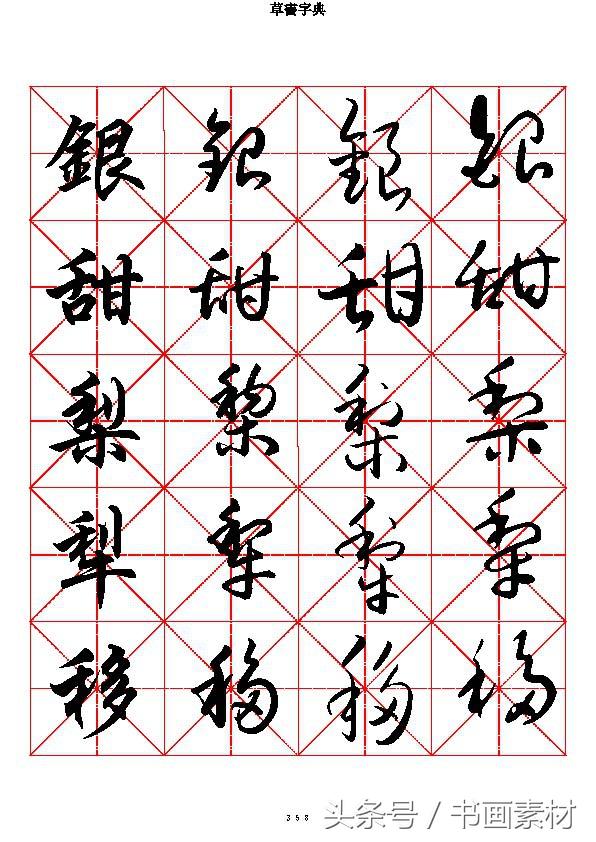 草書字典
銀銀銀銀
甜甜甜甜
梨梨梨梨
犁犁犁犁
移移移移
358
头条号 / 书画素材